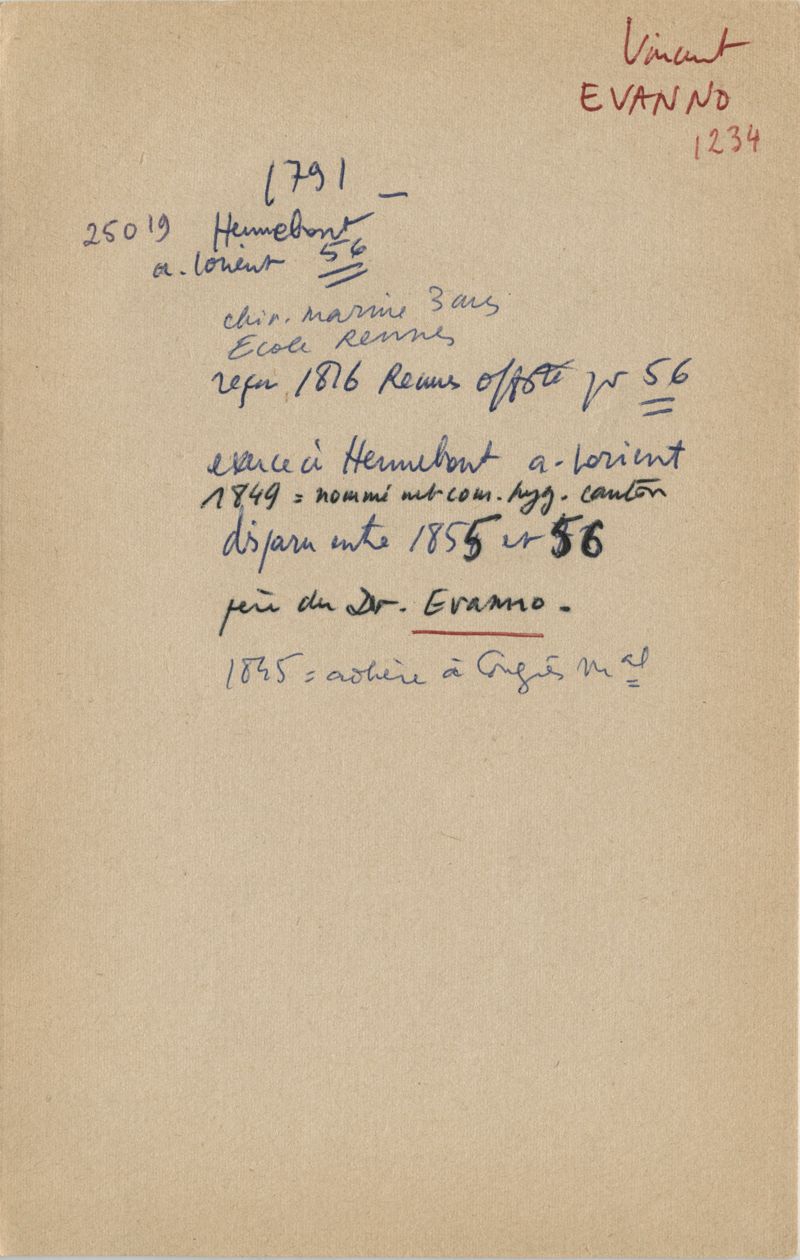 Vincent
EVANNO
1234
1791 _
250 19 Hennebont
a. Lorient 56
chir. marine 3 ans
Ecole Rennes
reçu 1816 Rennes offsté pr 56
exerce à Hennebont a. Lorient
1849 = nommé mb com. hyg. canton
disparu entre 1855 et 56
père du Dr. Evanno.
1845 = adhère à Congrès Mal